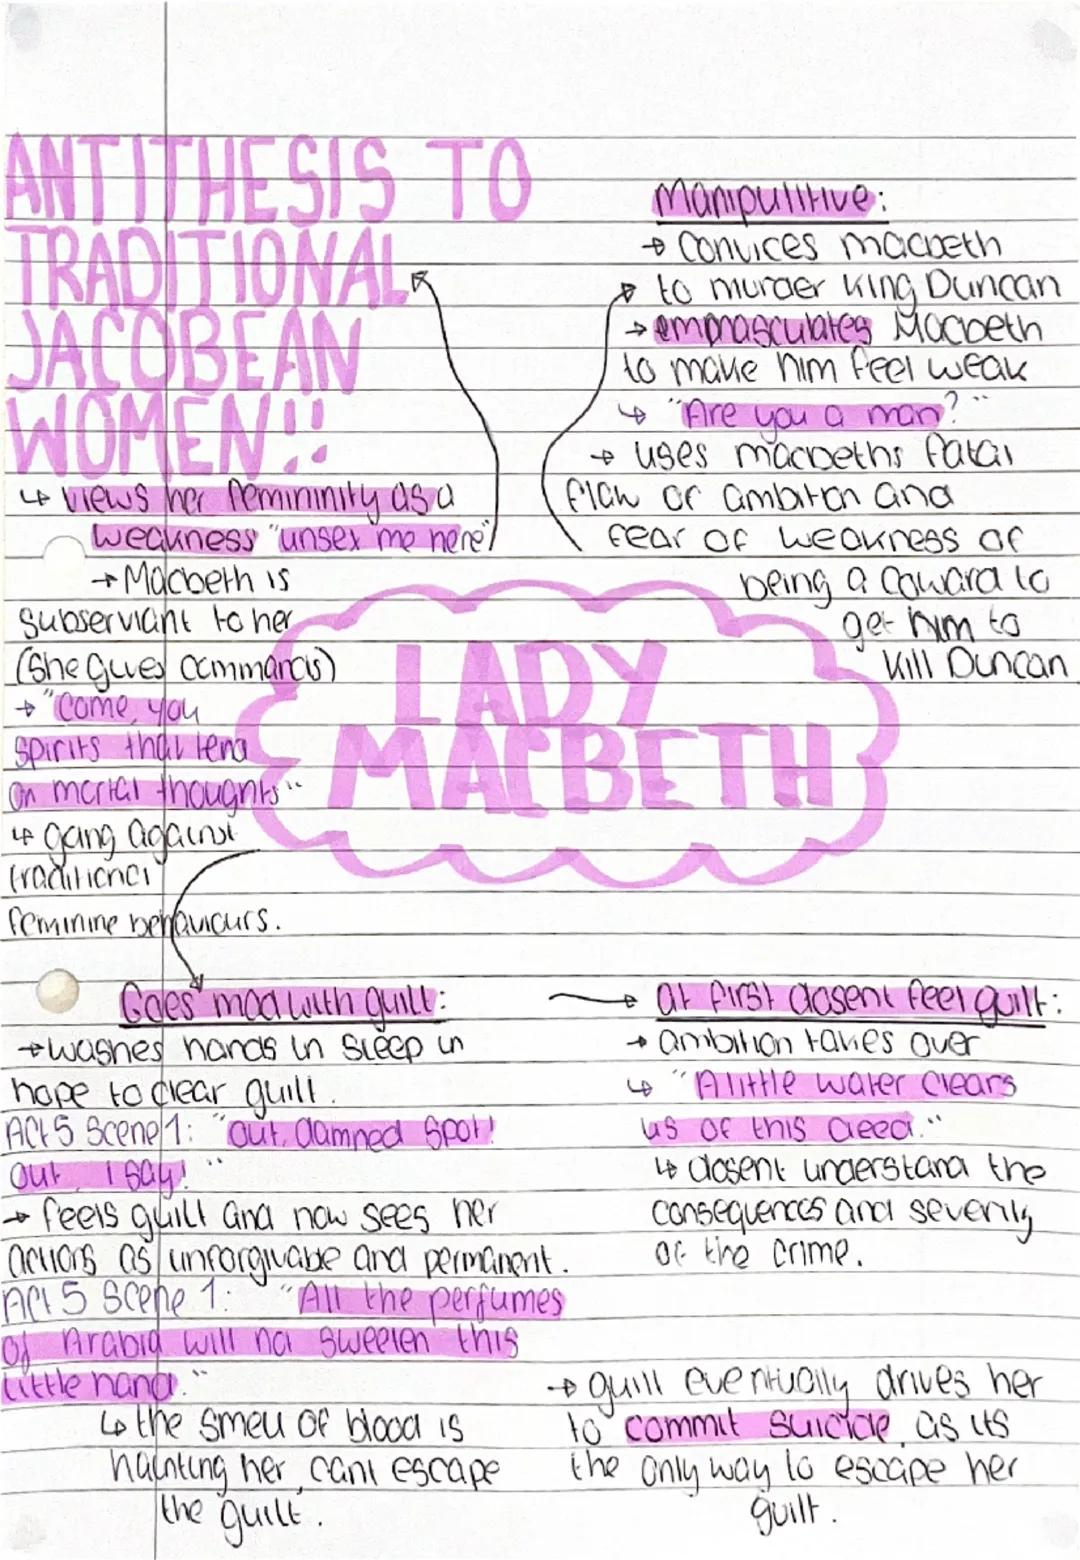 ANTITHESIS TO
TRADITIONAL
JACOBEAN
WOMEN!!
↳ views her femininity as a
weakness "unsex me here"
→ Macbeth is
subserviant to her
(she gives commands)
→ "Come, you
spirits that tend
on mortal thoughts"
↳ going against
traditional
feminine behaviours.
Manipulitive:
→ Convices macbeth
to murder king Duncan
→ emmasculates Macbeth
to make him feel weak
↳ "Are you a man?"
→ uses macbeths fatal
flaw of ambition and
fear of weakness of
being a coward to
get him to
kill Duncan
LADY
MACBETH
Goes mad with guilt:
→ washes hands in sleep in
hope to clear guilt.
Act 5 Scene 1: "Out, damned spot!
Out, I say!"
→ feels guilt and now sees her
actions as unforgivable and permanent.
Act 5 Scene 1: "All the perfumes
of Arabia will not sweeten this
little hand."
↳ the smell of blood is
haunting her, cant escape
the guilt.
→ at first dosent feel guilt:
→ ambition takes over
↳ "A little water clears
us of this deed."
↳ dosent understand the
consequences and severity
of the crime.
→ guilt eventually drives her
to commit suicide, as its
the only way to escape her
guilt.